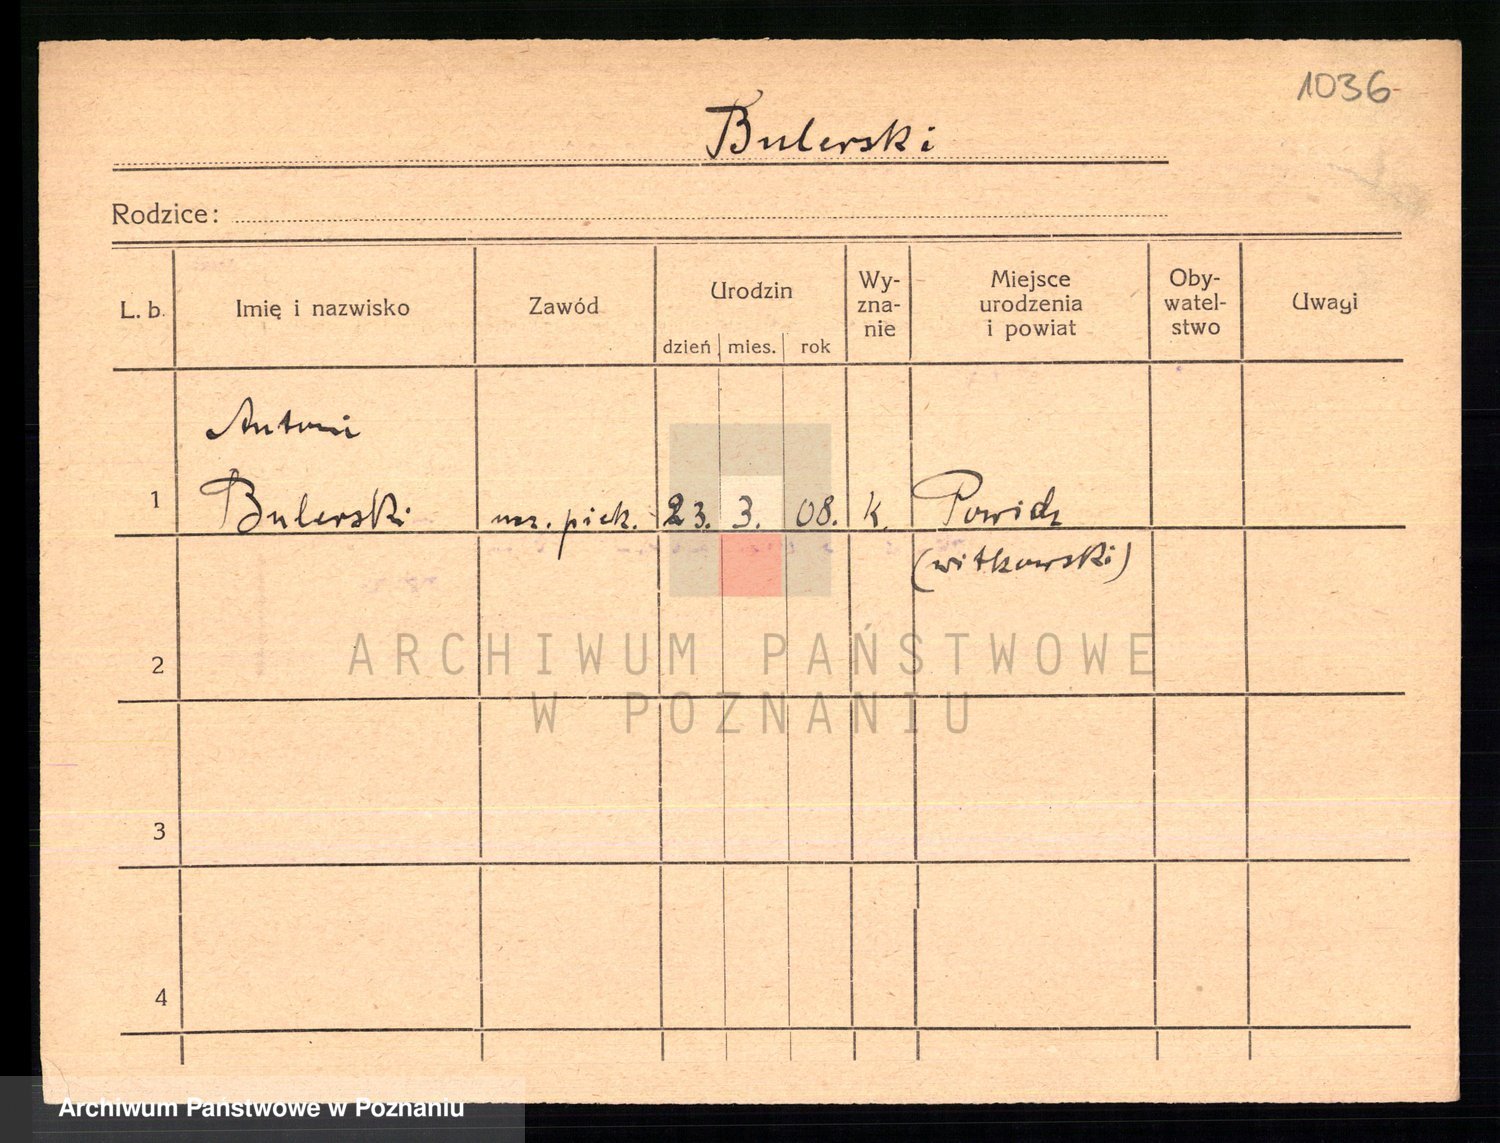 1036
Bulerski
Rodzice:
L. b.
Imię i nazwisko
Zawód
Urodzin
dzień
mies.
rok
Wy-
zna-
nie
Miejsce
urodzenia
i powiat
Oby-
watel-
stwo
Uwagi
Antoni
1 Bulerski
ucz. piek. 23. 3. 08. k. Powidz
(witkowski)
2
3
4
ARCHIWUM PAŃSTWOWE
W POZNANIU
Archiwum Państwowe w Poznaniu